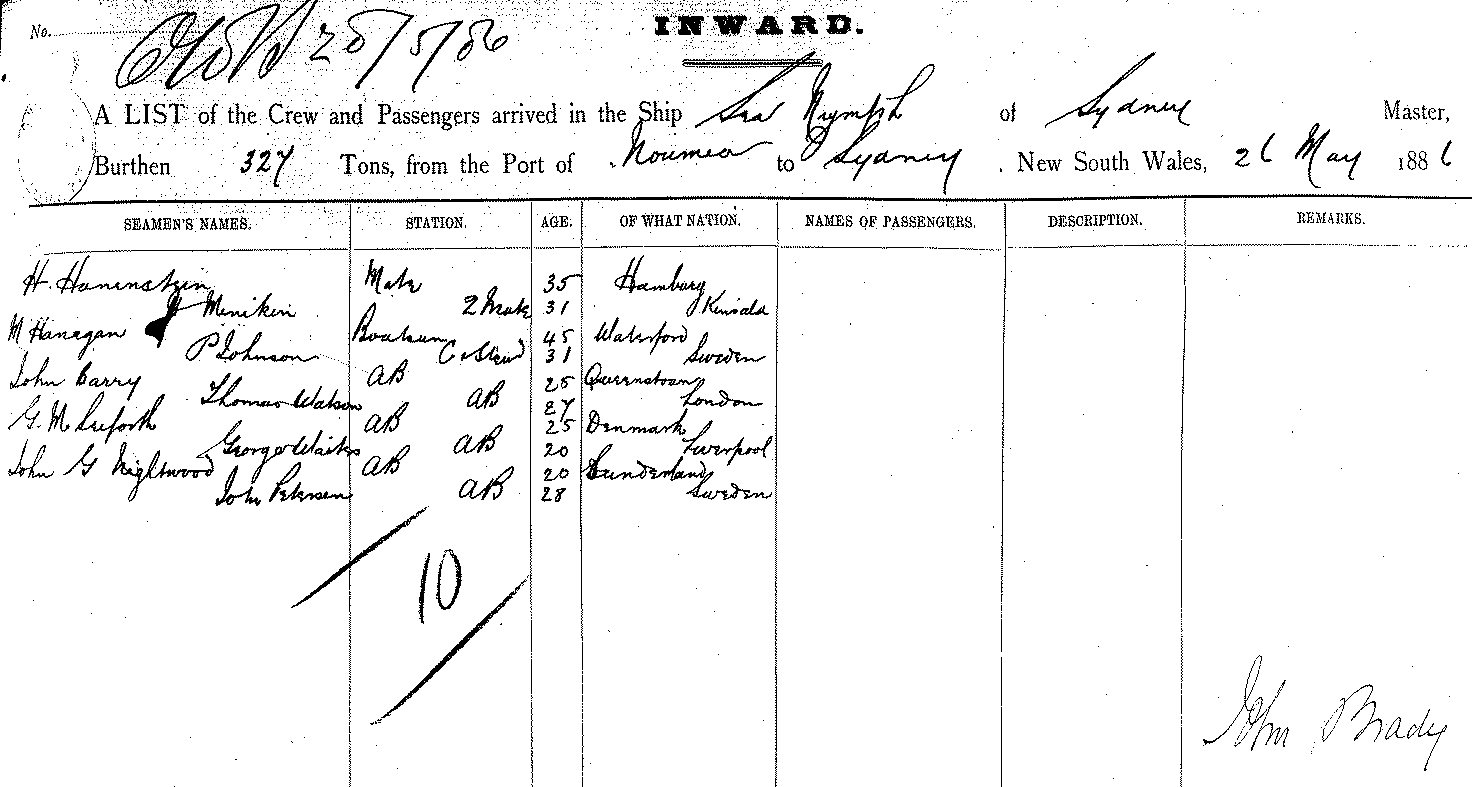 No.
28/5/86
INWARD.
A LIST of the Crew and Passengers arrived in the Ship Sea Nymph of Sydney Master,
Burthen 327 Tons, from the Port of Noumea to Sydney . New South Wales, 26 May 1886
SEAMEN'S NAMES. STATION. AGE. OF WHAT NATION. NAMES OF PASSENGERS. DESCRIPTION. REMARKS.
H. Hanenstein Mate 35 Hamburg
Menikin 2 Mate 31 Kinsale
M Hanagan Boatsun 45 Waterford
P Johnson C & Stewd 31 Sweden
John Barry AB 25 Queenstown
Thomas Watson AB 27 London
G. M Seeforth AB 25 Denmark
George Waites AB 20 Liverpool
John G Nightwood AB 20 Sunderland
John Petersen AB 28 Sweden
10
John Brady